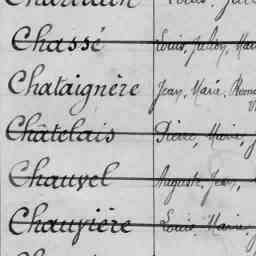 Chassé Louis, Julien, Mari
Chataignère Jean, Marie,
Châtelais Pierre, Marie, J
Chauvel Auguste, Jean,
Chauvière Louis, Marie,